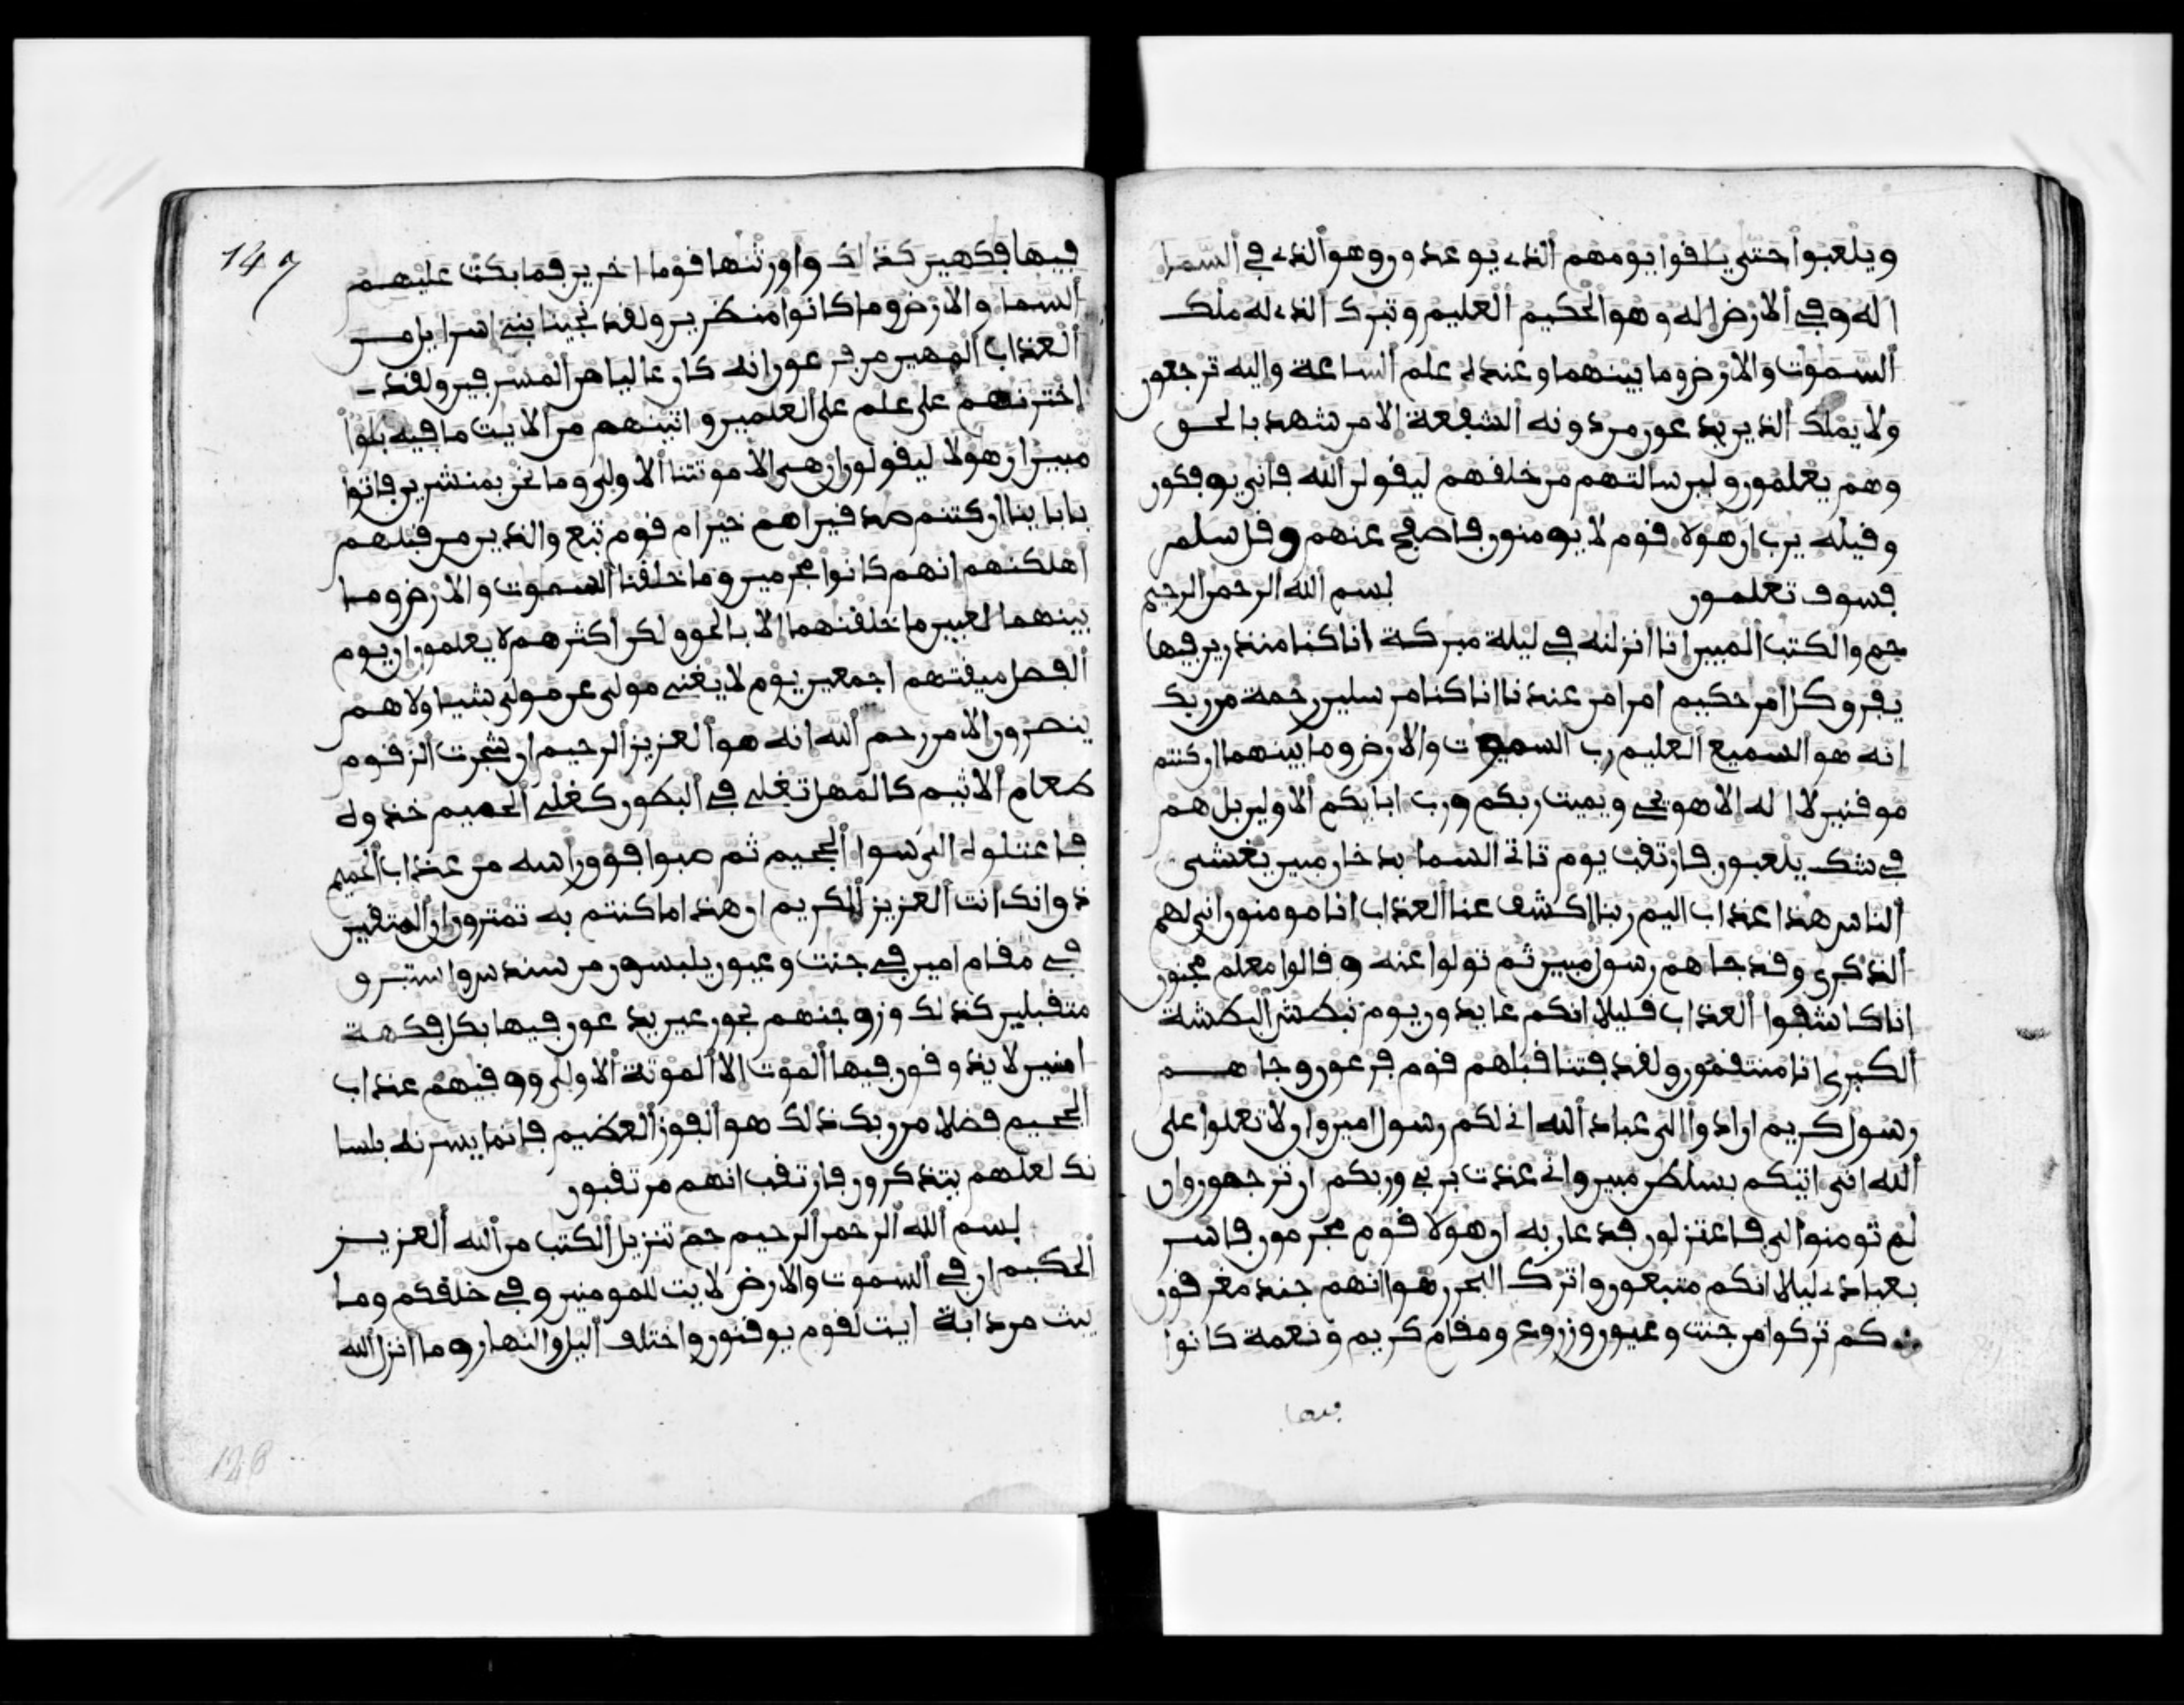 ويلعبوا حتى يلقوا يومهم الذي يوعدون وهو الذي في السما
اله وفي الارض اله وهو الحكيم العليم وتبرك الذي له ملك
السموت والارض وما بينهما وعنده علم الساعة واليه ترجعون
ولا يملك الذين يدعون من دونه الشفعة الا من شهد بالحق
وهم يعلمون ولين سالتهم من خلقهم ليقولن الله فانى يوفكون
وقيله يرب ان هولا قوم لا يومنون فاصفح عنهم وقل سلم
فسوف تعلمون بسم الله الرحمن الرحيم
حم والكتب المبين انا انزلنه في ليلة مبركة انا كنا منذرين فيها
يفرق كل امر حكيم امرا من عندنا انا كنا مرسلين رحمة من ربك
انه هو السميع العليم رب السموت والارض وما بينهما ان كنتم
موقنين لا اله الا هو يحي ويميت ربكم ورب ابايكم الاولين بل هم
في شك يلعبون فارتقب يوم تاتي السما بدخان مبين يغشى
الناس هذا عذاب اليم ربنا اكشف عنا العذاب انا مومنون انى لهم
الذكرى وقد جاهم رسول مبين ثم تولوا عنه وقالوا معلم مجنون
انا كاشفوا العذاب قليلا انكم عايدون يوم نبطش البطشة
الكبرى انا منتقمون ولقد فتنا قبلهم قوم فرعون وجاهم
رسول كريم ان ادوا الى عباد الله اني لكم رسول امين وان لا تعلوا على
الله اني اتيكم بسلطن مبين واني عذت بربي وربكم ان ترجمون وان
لم تومنوا لي فاعتزلون فدعا ربه ان هولا قوم مجرمون فاسر
بعبادي ليلا انكم متبعون واترك البحر رهوا انهم جند مغرقون
كم تركوا من جنت وعيون وزروع ومقام كريم ونعمة كانوا
فيها
147
فيها فكهين كذلك واورثنها قوما اخرين فما بكت عليهم
السما والارض وما كانوا منظرين ولقد نجينا بني اسرايل من
العذاب المهين من فرعون انه كان عاليا من المسرفين ولقد
اخترنهم على علم على العلمين واتينهم من الايت ما فيه بلوا
مبين ان هولا ليقولون ان هي الا موتتنا الاولى وما نحن بمنشرين فاتوا
بابابنا ان كنتم صدقين اهم خير ام قوم تبع والذين من قبلهم
اهلكنهم انهم كانوا مجرمين وما خلقنا السموت والارض وما
بينهما لعبين ما خلقنهما الا بالحق ولكن اكثرهم لا يعلمون ان يوم
الفصل ميقتهم اجمعين يوم لا يغني مولى عن مولى شيا ولا هم
ينصرون الا من رحم الله انه هو العزيز الرحيم ان شجرت الزقوم
طعام الاثيم كالمهل تغلي في البطون كغلي الحميم خذوه
فاعتلوه الى سوا الجحيم ثم صبوا فوق راسه من عذاب الحميم
ذق انك انت العزيز الكريم ان هذا ما كنتم به تمترون ان المتقين
في مقام امين في جنت وعيون يلبسون من سندس واستبرق
متقبلين كذلك وزوجنهم بحور عين يدعون فيها بكل فكهة
امنين لا يذوقون فيها الموت الا الموتة الاولى ووقيهم عذاب
الجحيم فضلا من ربك ذلك هو الفوز العظيم فانما يسرنه بلسا
نك لعلهم يتذكرون فارتقب انهم مرتقبون
بسم الله الرحمن الرحيم حم تنزيل الكتب من الله العزيز
الحكيم ان في السموت والارض لايت للمومنين وفي خلقكم وما
يبث من دابة ايت لقوم يوقنون واختلف اليل والنهار وما انزل الله
148